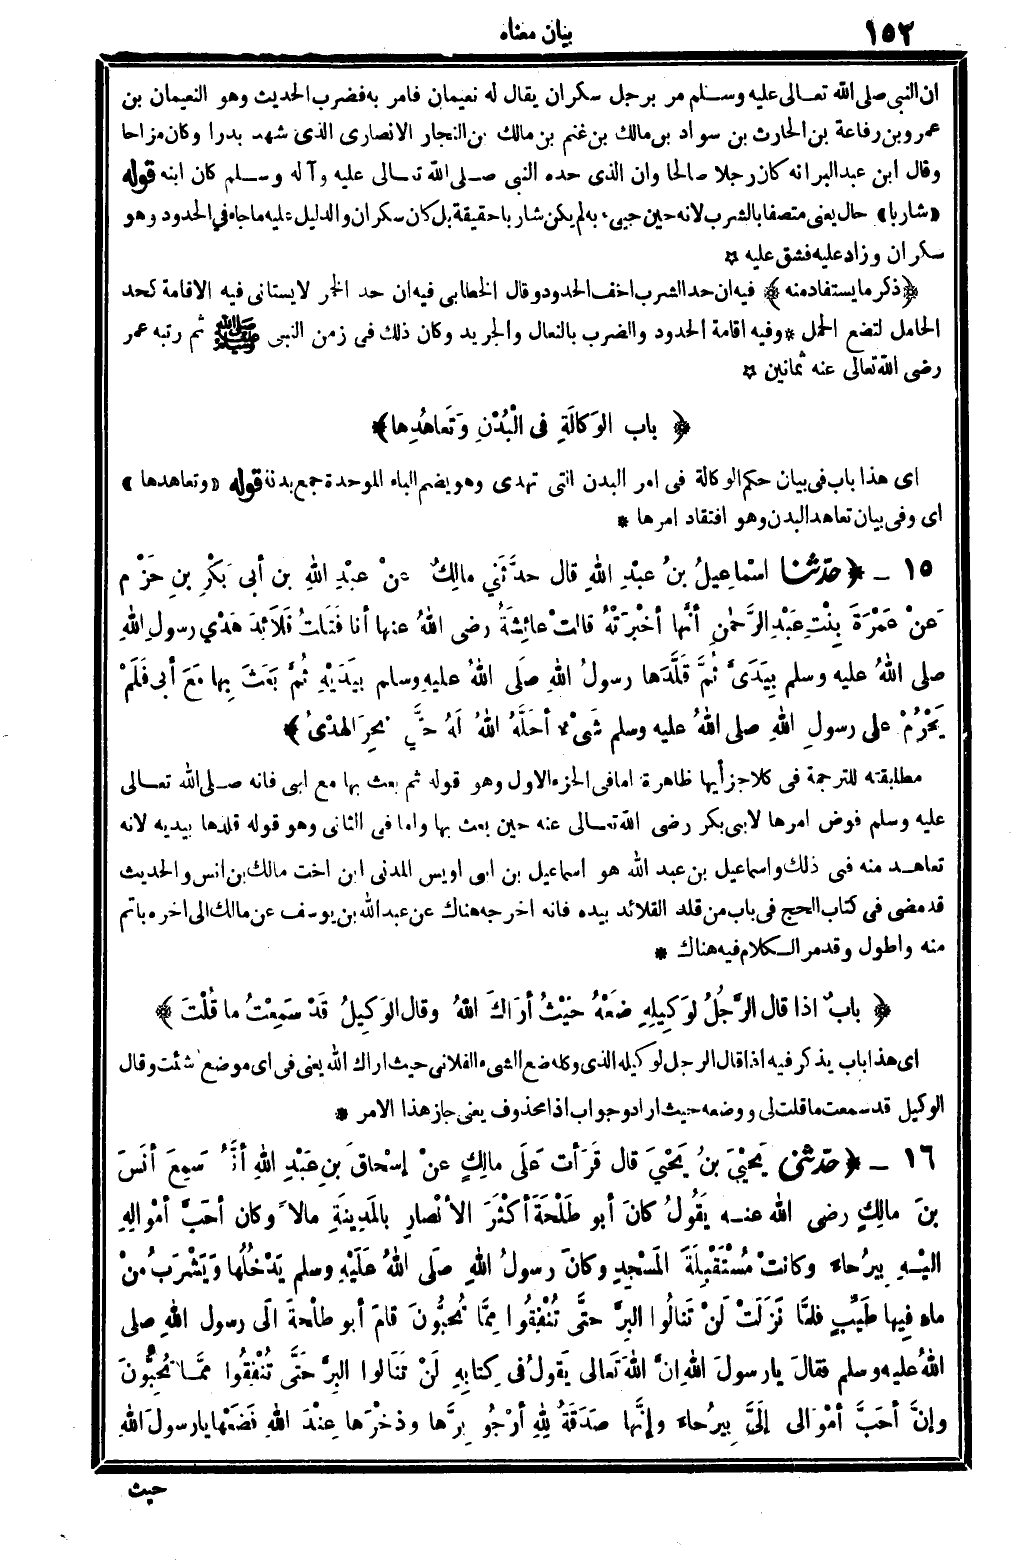 ١٥٢
بيان معناه
ان النبى صلى الله تعـالى عليه وسـلم مر برجل سكران يقال له نعيمان فامر به فضرب الحديث وهو النعيمان بن
عمرو بن رفاعة بن الحارث بن سواد بن مالك بن غنم بن مالك بن النجار الانصارى الذى شهد بدرا وكان مزاحا
وقال ابن عبد البر انه كان رجلا صالحا وان الذى حده النبى صـلى الله تـعالى عليه وآله وسـلم كان ابنه قوله
«شاربا» حال يعنى متصفا بالشرب لانه حين جيىء به لم يكن شاربا حقيقة بل كان سكران والدليل عليه ماجاء فى الحدود وهو
سكران وزاد عليه فشق عليه ☆
﴿ذكر مايستفاد منه﴾ فيه ان حد الشرب اخف الحدود وقال الخطابى فيه ان حد الخمر لايستانى فيه الاقامة كحد
الحامل لتضع الحمل * وفيه اقامة الحدود والضرب بالنعال والجريد وكان ذلك فى زمن النبى ﷺ ثم رتبه عمر
رضى الله تعالى عنه ثمانين ☆
﴿ باب الوَكالَةِ فى الْبُدْنِ وَتَعاهُدِها﴾
اى هذا باب فى بيان حكم الوكالة فى امر البدن التى تهدى وهو بضم الباء الموحدة جمع بدنة قوله «وتعاهدها»
اى وفى بيان تعاهد البدن وهو افتقاد امرها *
١٥ ـ ﴿حدثنا اسْماعِيلُ بنُ عبْدِ اللهِ قال حدَّثَنِي مالِكٌ عنْ عبْدِ اللهِ بن أبى بَكْرِ بنِ حَزْمٍ
عَنْ عَمْرَةَ بِنْتِ عبْدِ الرَّحْمٰنِ أنَّها أخْبرَتْهُ قالتْ عائِشَةُ رضى اللهُ عنها أنا فَتَلتُ قَلَائِدَ هَدْي رسولِ اللهِ
صلى اللهُ عليه وسلم بِيَدَىَّ ثُمَّ قَلَّدَها رسولُ اللهِ صلَى اللهُ عليهِ وسلم بِيَدَيْهِ ثُمَّ بَعَثَ بِها معَ أبى فَلَمْ
يَحْرُمْ على رسولِ اللهِ صلى اللهُ عليه وسلم شَىْءٌ أحَلَّهُ اللهُ لَهُ حتَّى نُحِرَ الهدْىُ﴾
مطابقته للترجمة فى كلا جزأيها ظاهرة اما فى الجزء الاول وهو قوله ثم بعث بها مع ابى فانه صـلى الله تعـالى
عليه وسلم فوض امرها لابى بكر رضى الله تعـالى عنه حين بعث بها واما فى الثانى وهو قوله قلدها بيديه لانه
تعاهـد منه فى ذلك واسماعيل بن عبد الله هو اسماعيل بن ابى اويس المدنى ابن اخت مالك بن انس والحديث
قد مضى فى كتاب الحج فى باب من قلد القلائد بيده فانه اخرجه هناك عن عبد الله بن يوسف عن مالك الى اخره باتم
منه واطول وقد مر الـكلام فيه هناك *
﴿ بابٌ اذا قال الرَّجُلُ لوَكِيلِهِ ضَعْهُ حَيْثُ أرَاكَ اللهُ وقال الوَكِيلُ قَدْ سَمِعْتُ ما قُلْتَ ﴾
اى هذا باب يذكر فيه اذا قال الرجل لوكيله الذى وكله ضع الشىء الفلانى حيث اراك الله يعنى فى اى موضع شئت وقال
الوكيل قد سمعت ماقلت لى ووضعه حيث اراد وجواب اذا محذوف يعنى جاز هذا الامر *
١٦ ـ ﴿حدثنى يَحْيَى بنُ يَحْيَ قال قَرَأت عَلَى مالِكٍ عنْ إسْحاقَ بنِ عَبْدِ اللهِ أنَّهُ سَمِعَ أنَسَ
بنَ مالِكٍ رضى الله عنـه يَقُولُ كانَ أبو طَلْحَةَ أكْثَرَ الأنْصارِ بالمَدِينَةِ مالاً وكان أحَبَّ أمْوالِهِ
اليْـهِ بِيرُحاء وكانتْ مُسْتَقْبِلَةَ المَسْجِدِ وكانَ رسولُ اللهِ صلَى اللهُ عَلَيْهِ وسلم يَدْخُلُها وَيَشْرَبُ مِنْ
ماء فِيها طَيِّبٍ فلمَّا نَزَلَتْ لَنْ تَنالُوا البِرَّ حتَّى تُنْفِقُوا مِمَّا تُحِبُّونَ قامَ أبو طلْحةَ الَى رسول اللهِ صلى
اللهُ عليه وسلم فقالَ يارسولَ اللهِ انَّ اللهَ تَعالى يَقولُ فى كِتابِهِ لَنْ تَنَالوا البِرَّ حَتَّى تُنْفِقُوا مِمَّا تُحِبُّونَ
وإنَّ أحَبَّ أمْوَالى إلَيَّ بِيرُحاء وإنَّها صَدَقَةٌ لِلهِ أرْجُو بِرَّها وذخْرَها عِنْدَ اللهِ فَضَعْها يارسولَ اللهِ
حيث